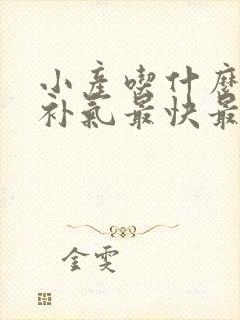 小產喫什麽
补氣最快最
金雯